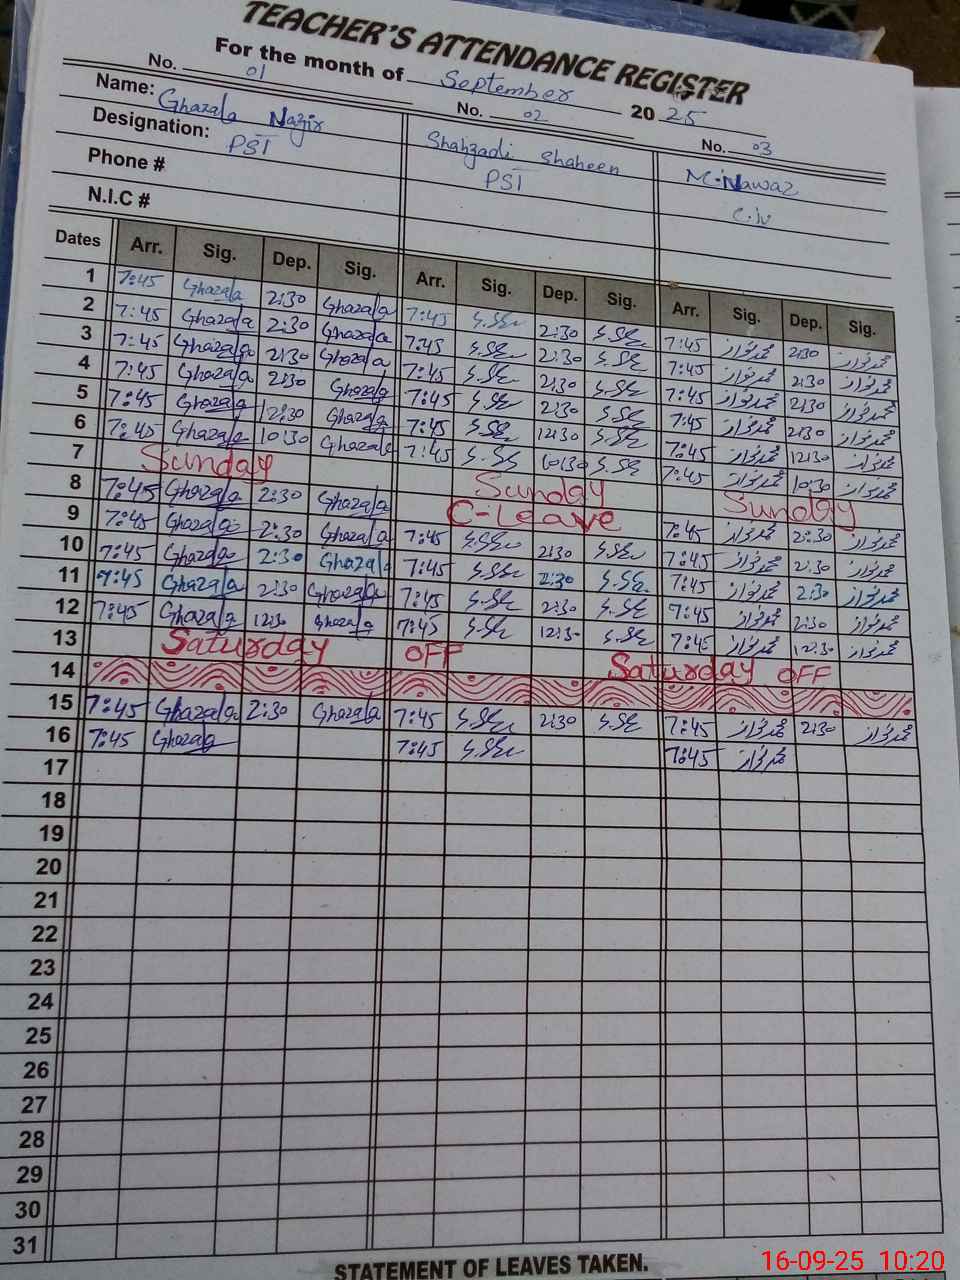 TEACHER'S ATTENDANCE REGISTER
For the month of September 2025
No. 01 No. 02 No. 03
Name: Ghazala Nazir Shahzadi Shaheen M. Nawaz
Designation: PST PST
Phone #
N.I.C #
Dates Arr. Sig. Dep. Sig. Arr. Sig. Dep. Sig. Arr. Sig. Dep. Sig.
1 7:45 Ghazala 2:30 Ghazala 7:45 2:30 7:45 محمد نواز 2:30 محمد نواز
2 7:45 Ghazala 2:30 Ghazala 7:45 2:30 7:45 محمد نواز 2:30 محمد نواز
3 7:45 Ghazala 2:30 Ghazala 7:45 2:30 7:45 محمد نواز 2:30 محمد نواز
4 7:45 Ghazala 2:30 Ghazala 7:45 2:30 7:45 محمد نواز 2:30 محمد نواز
5 7:45 Ghazala 12:30 Ghazala 7:45 12:30 7:45 محمد نواز 12:30 محمد نواز
6 7:45 Ghazala 10:30 Ghazala 7:45 10:30 7:45 محمد نواز 10:30 محمد نواز
7 Sunday Sunday Sunday
8 7:45 Ghazala 2:30 Ghazala C-Leave 7:45 محمد نواز 2:30 محمد نواز
9 7:45 Ghazala 2:30 Ghazala 7:45 2:30 7:45 محمد نواز 2:30 محمد نواز
10 7:45 Ghazala 2:30 Ghazala 7:45 2:30 7:45 محمد نواز 2:30 محمد نواز
11 7:45 Ghazala 2:30 Ghazala 7:45 2:30 7:45 محمد نواز 2:30 محمد نواز
12 7:45 Ghazala 12:30 Ghazala 7:45 12:30 7:45 محمد نواز 12:30 محمد نواز
13 Saturday OFF Saturday OFF
14
15 7:45 Ghazala 2:30 Ghazala 7:45 2:30 7:45 محمد نواز 2:30 محمد نواز
16 7:45 Ghazala 7:45 7:45 محمد نواز
17
18
19
20
21
22
23
24
25
26
27
28
29
30
31
STATEMENT OF LEAVES TAKEN.
16-09-25 10:20